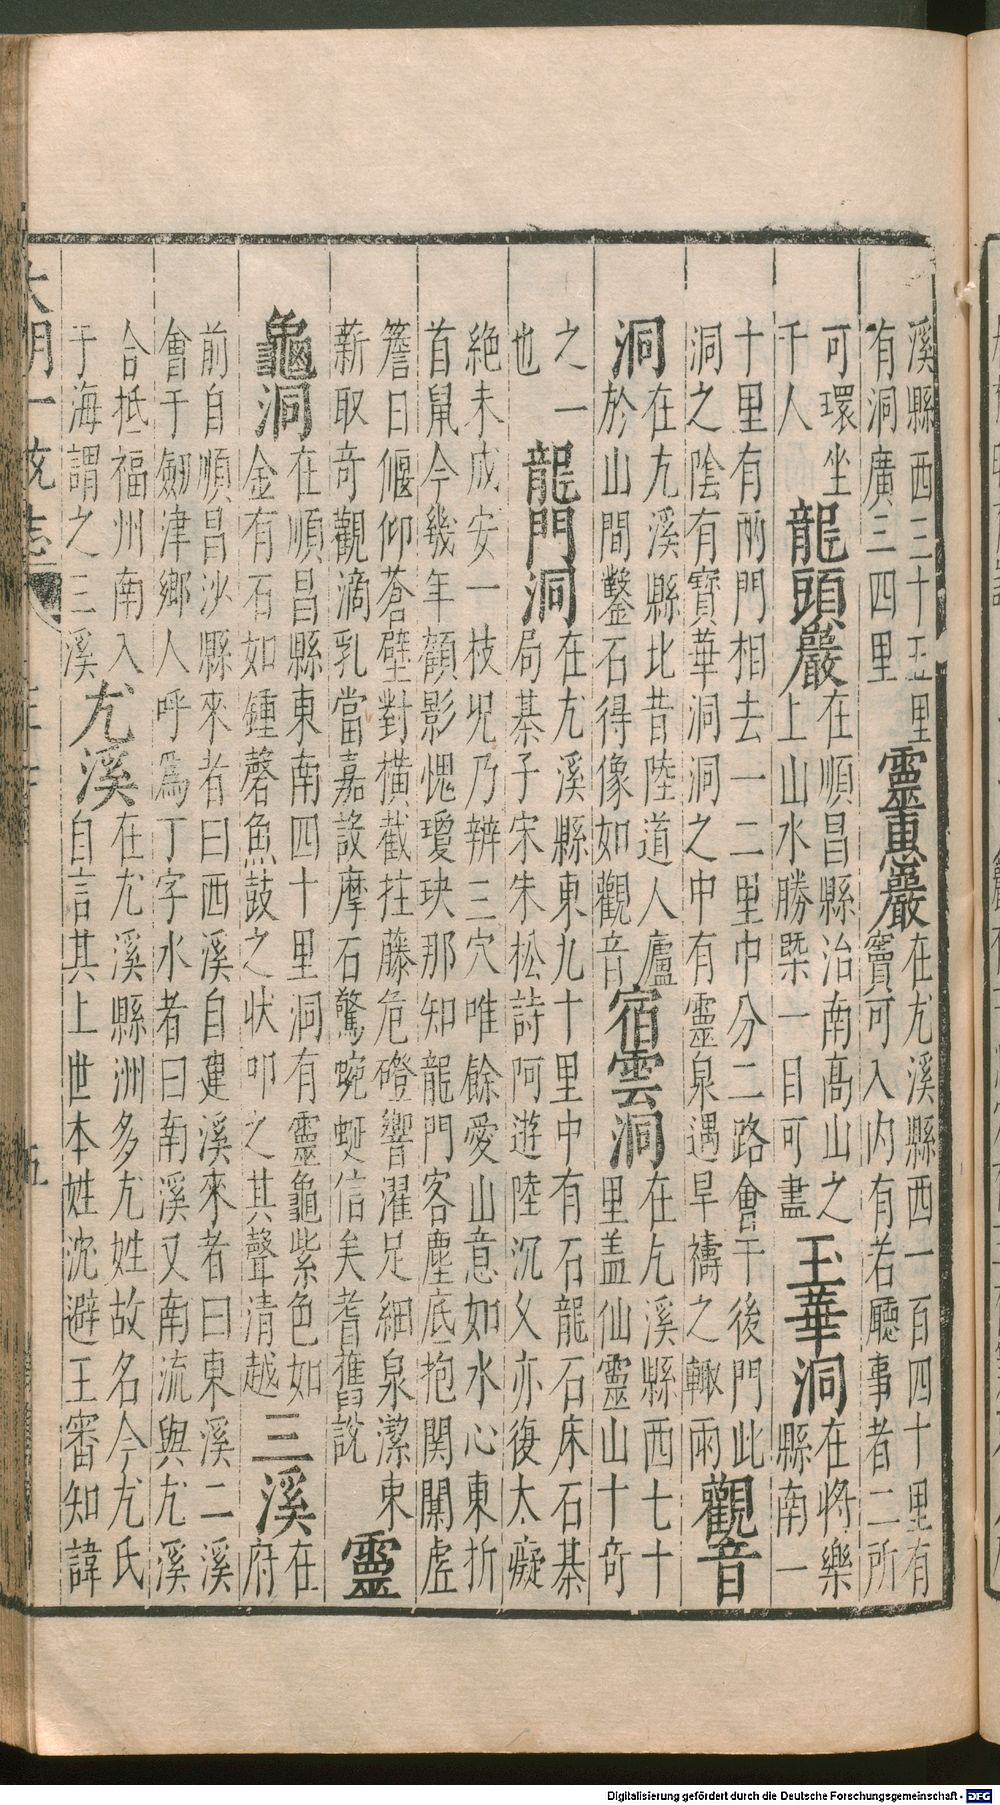 溪縣西三十五里
有洞廣三四里
靈惠巖
在尤溪縣西一百四十里有
竇可入内有若廳事者二所
可環坐
千人
龍頭巖
在順昌縣治南高山之
上山水勝槩一目可盡
玉華洞
在將樂
縣南一
十里有兩門相去一二里中分二路會于後門此
洞之陰有寶華洞洞之中有靈泉遇旱禱之輙雨
觀音
洞
在尤溪縣北昔陸道人廬
於山間鑿石得像如觀音
宿雲洞
在尤溪縣西七十
里盖仙靈山十奇
之一
也
龍門洞
在尤溪縣東九十里中有石龍石床石棊
局棊子宋朱松詩阿遊陸沉乂亦復太癡
絶未成安一枝兕乃辨三穴唯餘愛山意如水心東折
首鼠今幾年顧影愧瓊玦那知龍門客塵底抱関闑虛
簷日偃仰蒼壁對横截拄藤危磴響濯足細泉潔束
薪取奇觀滴乳當嘉設摩石驚蜿蜒信矣耆舊説
靈
龜洞
在順昌縣東南四十里洞有靈龜紫色如
金有石如鍾磬魚鼓之状叩之其聲清越
三溪
在
府
前自順昌沙縣來者曰西溪自建溪來者曰東溪二溪
會于劒津鄉人呼爲丁字水者曰南溪又南流與尤溪
合抵福州南入
于海謂之三溪
尤溪
在尤溪縣洲多尤姓故名今尤氏
自言其上世本姓沈避王審知諱
大明一統志
Digitalisierung gefördert durch die Deutsche Forschungsgemeinschaft - DFG